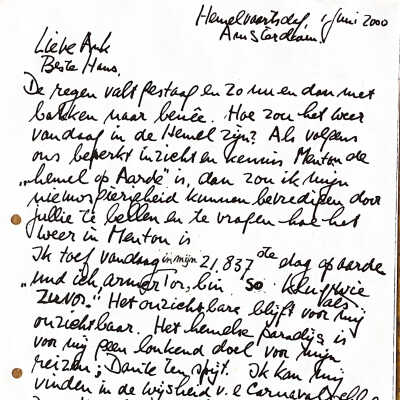 Hemelvaartsdag, 1 juni 2000
Amsterdam.
Lieve Ank
Beste Hans,
De regen valt gestaag en zo nu en dan met
bakken naar benêe. Hoe zou het weer
vandaag in de Hemel zijn? Als volgens
ons beperkt inzicht en kennis Menton de
„hemel op Aarde" is, dan zou ik mijn
nieuwsgierigheid kunnen bevredigen door
jullie te bellen en te vragen hoe het
weer in Menton is
Ik toef vandaag in mijn 21.837ste dag op aarde
„und ich armer Tor, bin so klug wie als
zuvor." Het onzichtbare blijft voor mij
onzichtbaar. Het hemelse paradijs is
voor mij geen lonkend doel voor mijn
reizen; Dante ten spijt. Ik kan mij
vinden in de wijsheid v.e